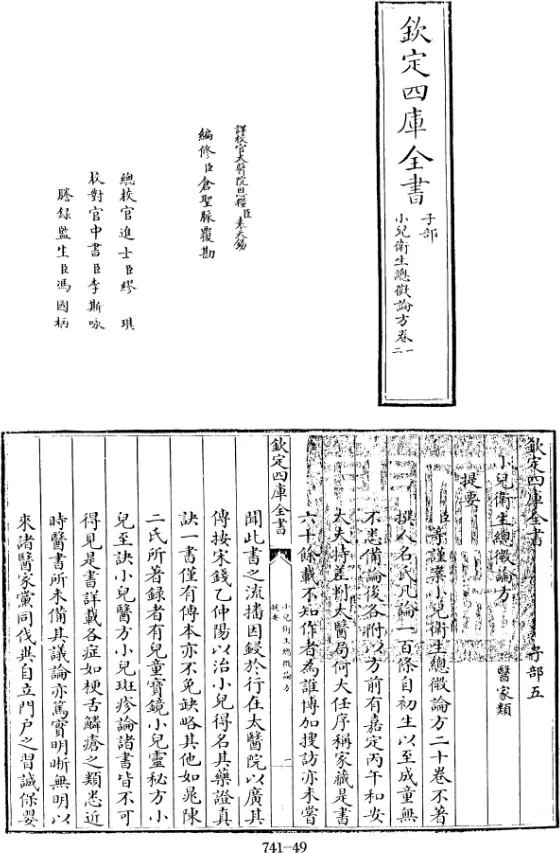 欽定四庫全書
子部
小兒衛生總微論方卷一
二
詳校官太醫院恩糧臣袁天錫
編修臣倉聖脈覆勘
總校官進士臣繆琪
校對官中書臣李斯咏
謄錄監生臣馮國柄
欽定四庫全書
子部五
小兒衛生總微論方
醫家類
提要
臣等謹案小兒衛生總微論方二十卷不著
撰人名氏凡論一百條自初生以至成童無
不悉備論後各附以方前有嘉定丙午和安
大夫特差判太醫局何大任序稱家藏是書
六十餘載不知作者為誰博加搜訪亦未嘗
欽定四庫全書
小兒衛生總微論方
提要
一
聞此書之流播因鋟於行在太醫院以廣其
傳按宋錢乙仲陽以治小兒得名其藥證真
訣一書僅有傳本亦不免缺略其他如晁陳
二氏所著錄者有兒童寶鏡小兒靈秘方小
兒至訣小兒醫方小兒斑疹論諸書皆不可
得見是書詳載各症如梗舌鱗瘡之類悉近
時醫書所未備其議論亦篤實明晰無明以
來諸醫家黨同伐異自立門户之習誠保嬰
741-49